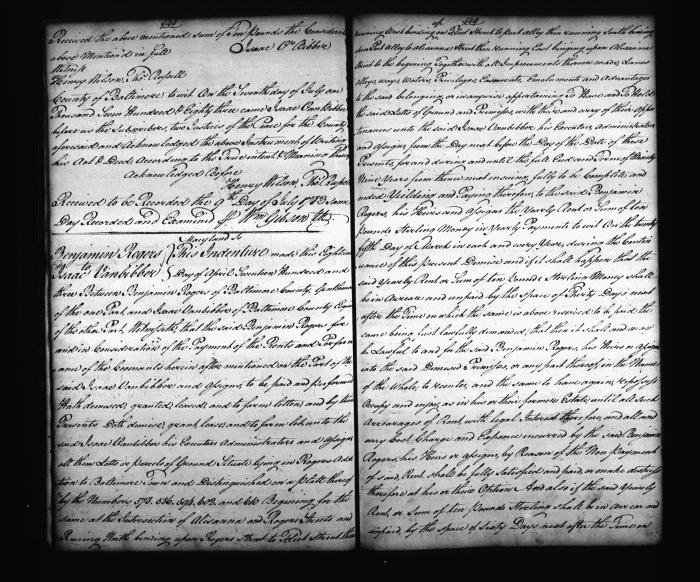 448
Received the above mentioned sum of Ten pounds the Consideration
above Mention'd in full
Isaac VnBibber
Witness
Henry Wilson, Thos. Russell
County of Baltimore to wit On the Seventh day of July one
Thousand Seven Hundred & Eighty three came Isaac VanBibber
before us the Subscribers, two Justices of the Peace for the County
aforesaid and Acknowledged the above Instrument of Writing
his Act & Deed, According to the True intent & Meaning thereof
Acknowledged Before
Henry Wilson, Thos. Russell
Received to be Recorded the 9th Day of July 1783 Same
Day Recorded and Examined Wm Gibson Clk
Benjamin Rogers
Isaac Vanbibber
Maryland Ss
This Indenture made this Eighteenth
Day of April Seventeen Hundred and
three Between Benjamin Rogers of Baltimore County Gentleman
of the one Part, and Isaac Vanbibber of Baltimore County
of the other Part, Witnesseth, that the said Benjamin Rogers for
and in Consideration of the Payment of the Rents and Perform
ance of the Covenants herein after mentioned on the Part of the
said Isaac Vanbibber and Assigns to be paid and performed
Hath demised, granted, leased, and to farm letten, and by these
Presents Doth demise, grant, lease, and to farm let unto the
said Isaac Vanbibber his Executors Administrators and Assigns
all them Lotts or parcels of Ground Situate lying in Rogers Addi
tion to Baltimore Town and Distinguished on a platt thereof
by the Numbers 573. 586. 594. 603. and Begining for the
same at the Intersection of Alisanna and Rogers Streets and
Running North binding upon Rogers Street to Fleet Street then
449
running West binding on Fleet Street to Part alley then running South binding
on Part alley to Alisanna Street then running East binging upon Alisanna
Street to the begining Together with all Improvements thereon made, Lanes
Alleys, ways, Waters, Priviliges Easements, Emoluments and Advantages
to the said belonging, or in anywise appertaining To Have and To Hold
the said Lotts of Ground and Premises, with their and every of their Appur
tenances unto the said Isaac Vanbibber his Executors, Administrators
and Assigns from the Day next before the Day of the Date of these
Presents, for and during and until the full End and Term of Ninety
Nine Years from thence next ensuing, fully to be Complete, and
ended Yielding and Paying therefore, to the said Benjamin
Rogers, his Heirs and Assigns the Yearly Rent or Sum of ten
pounds Sterling Money in Yearly Payments to wit On the twenty
fifth Day of March in each and every Year, during the Contin
uance of this present Demise and if it shall happen that the
said Yearly Rent or Sum of ten Pounds Sterling Money shall
be in Arrear and unpaid by the space of Thirty Days next
after the Time on which the same is above reserved to be paid the
same being first lawfully demanded, that then it shall and may
be Lawful to and for the said Benjamin Rogers, his Heirs or Assigns
into the said Demised Premises, or any part thereof, in the Name
of the Whole, to reenter, and the same to have again, repossess
Occupy and enjoy, as in his or their former Estate, until all such
Arrearages of Rent, with legal Interest therefore, and all and
every Cost Charge and Expence incurred by the said Benjamin
Rogers, his Heirs or Assigns, by Reason of the Non payment
of said Rent shall be fully Satisfied and paid, or make distress
therefore at his or their Option And also if the said Yearly
Rent, or Sum of ten pounds Sterling shall be in Arrear and
unpaid, by the space of Sixty Days next after the Time on